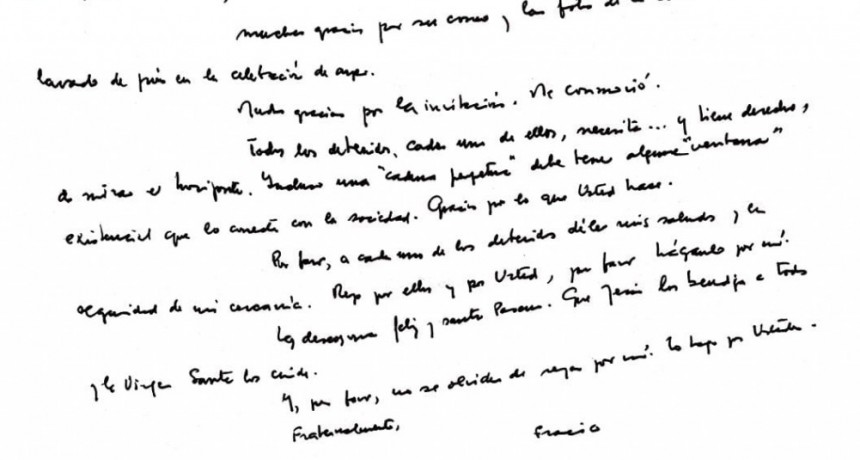 muchas gracias por su correo y las fotos de
lavado de pies en la celebración de ayer.
Muchas gracias por la invitación. Me conmovió.
Todos los detenidos, cada uno de ellos, necesita... y tiene derecho,
a mirar el horizonte. Incluso una "cadena perpetua" debe tener alguna "ventana"
existencial que lo conecte con la sociedad. Gracias por lo que Usted hace.
Por favor, a cada uno de los detenidos déles mis saludos y la
seguridad de mi cercanía. Rezo por ellos y por Usted, por favor háganlo por mí.
Les deseo una feliz y santa Pascua. Que Jesús los bendiga a todos
y la Virgen Santa los cuide.
Y, por favor, no se olviden de rezar por mí. Lo hago por Ustedes.
Fraternalmente,
Francisco